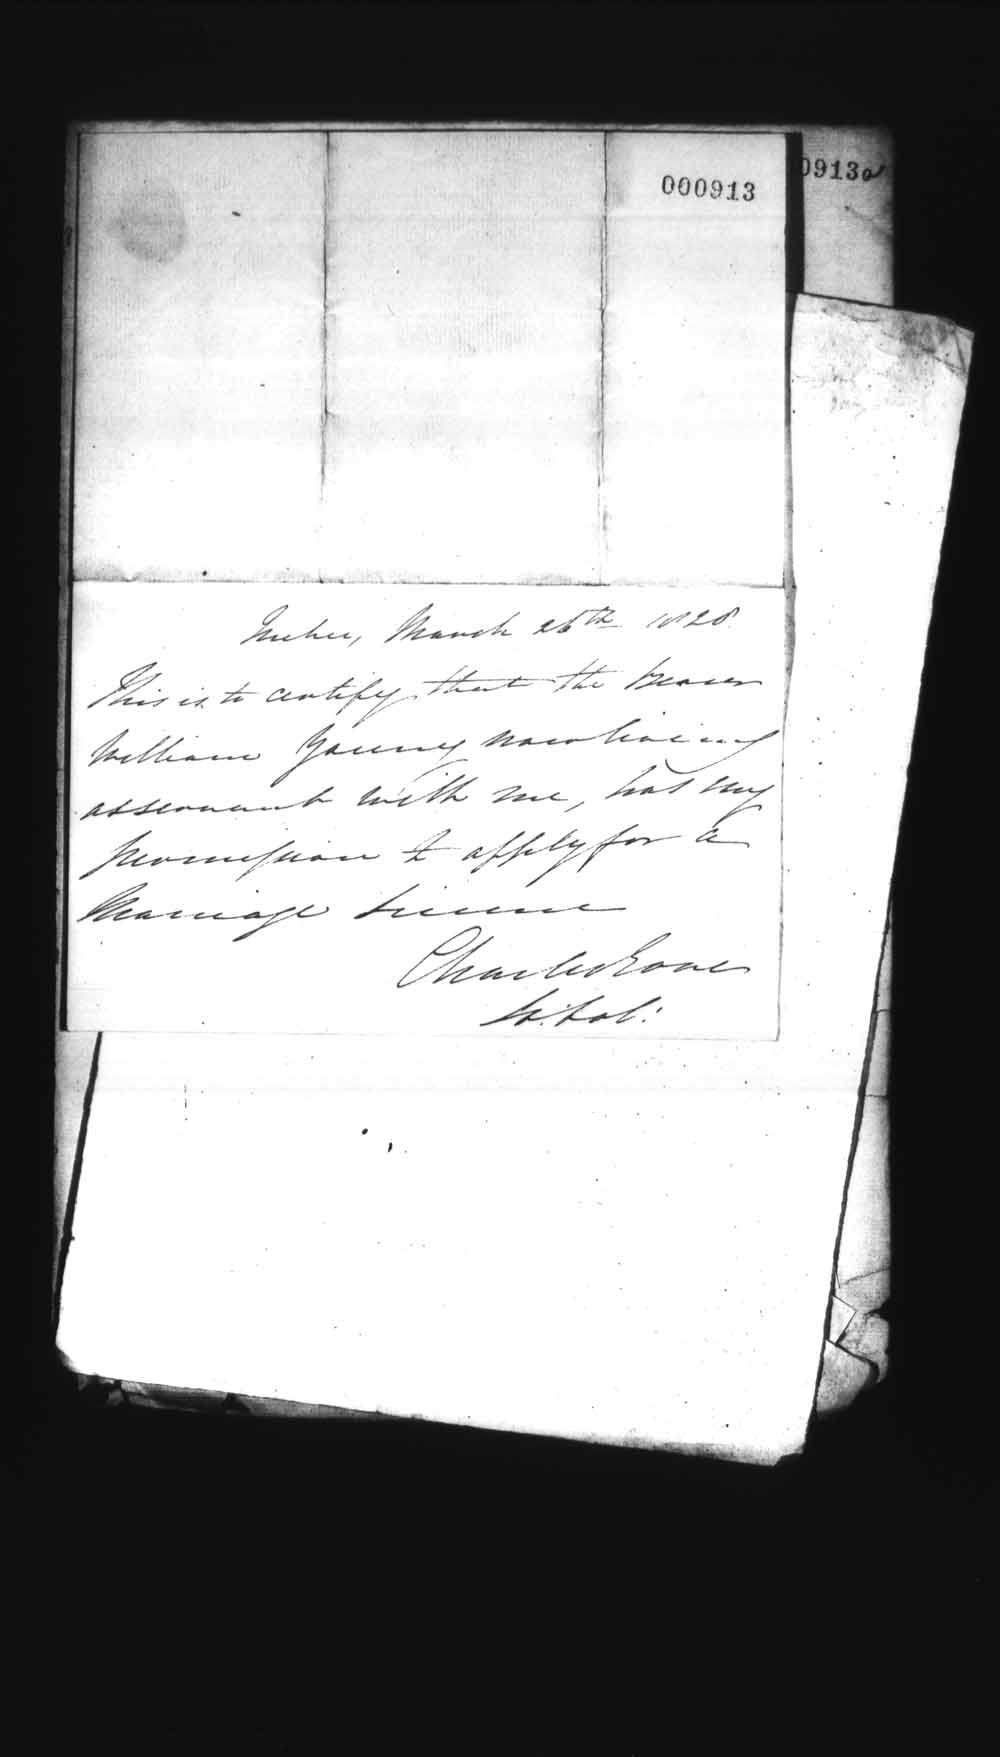 000913
0913a
Quebec, March 26th 1828.
This is to certify that the Bearer
William Young now living
as servant with me, has my
permission to apply for a
Marriage Licence
Charles